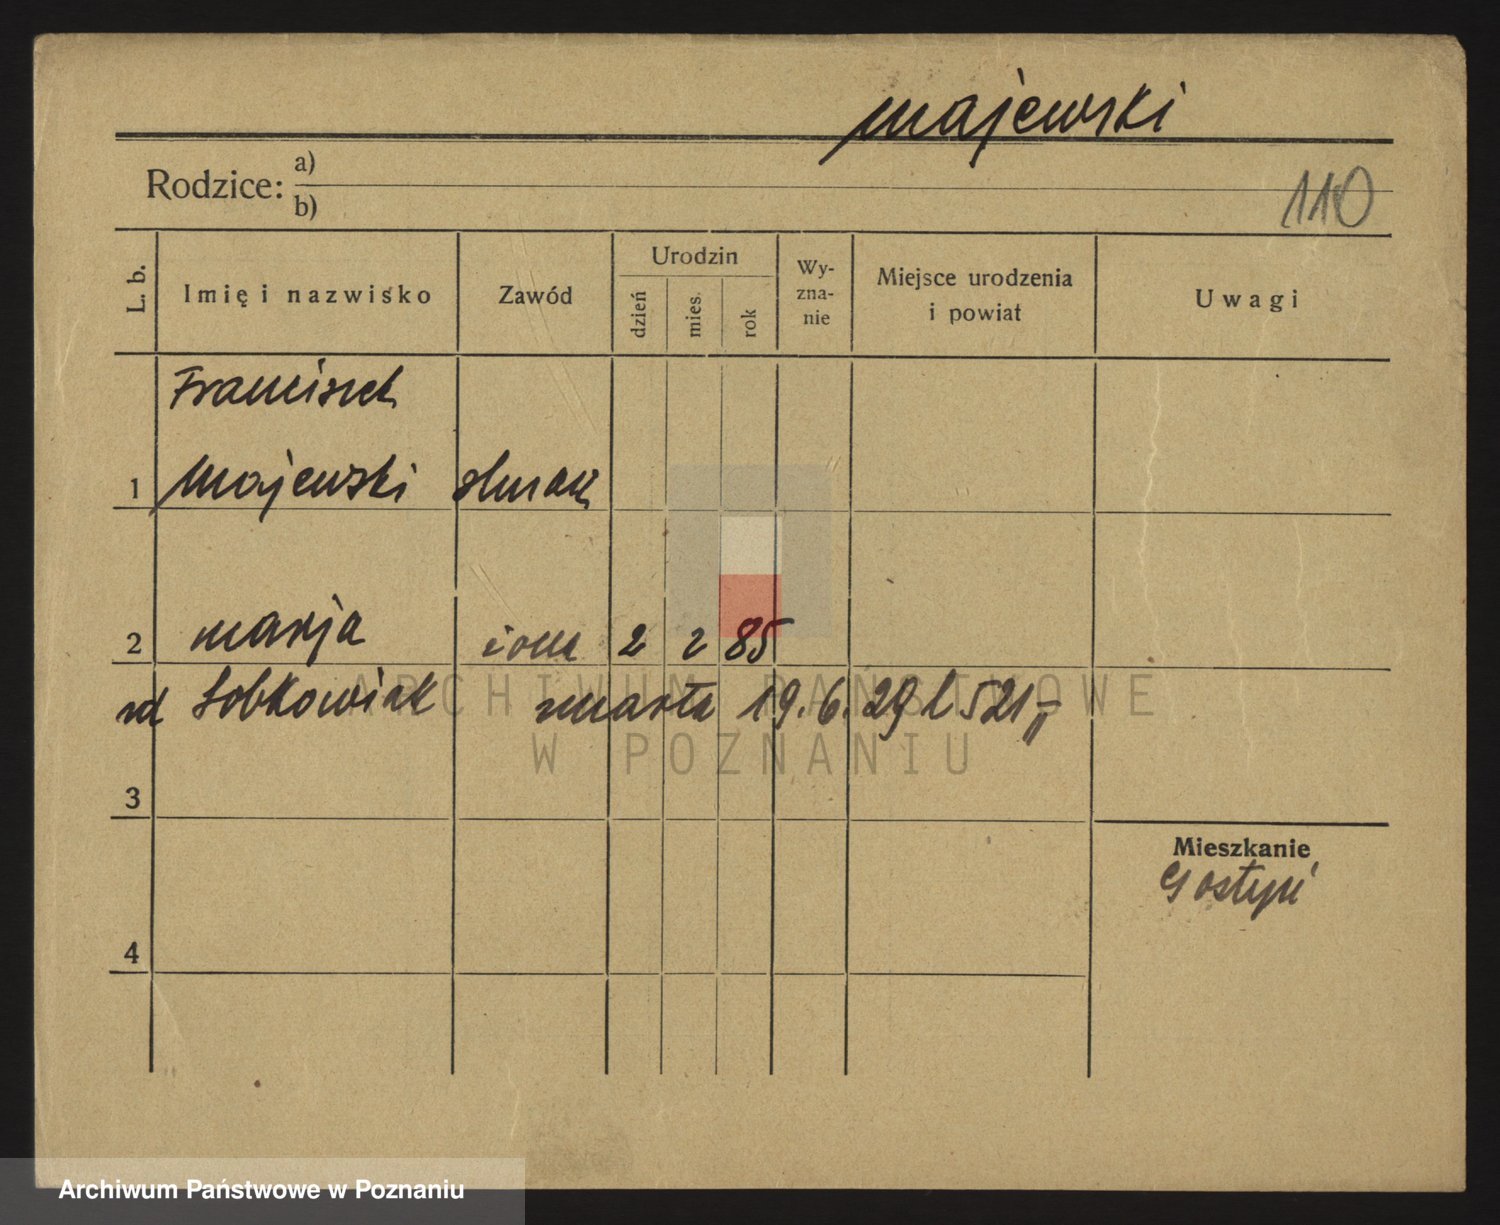 Majewski
Rodzice: a)
b)
110
L. b.
Imię i nazwisko
Zawód
Urodzin
dzień
mies.
rok
Wy-
zna-
nie
Miejsce urodzenia
i powiat
Uwagi
Franciszek
1 Majewski
2 Marja żona 2 2 85
Sobkowiak zmarła 19.6.29 l 521
3
Mieszkanie
Gostyń
4
ARCHIWUM PAŃSTWOWE
W POZNANIU
Archiwum Państwowe w Poznaniu